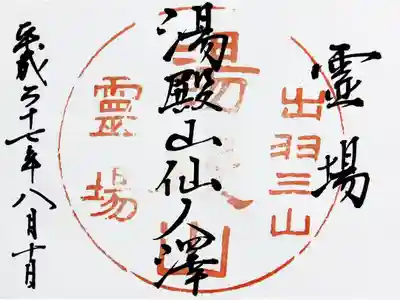 霊場
出羽三山
湯殿山
湯殿山仙人澤
霊場
平成二十七年八月十日